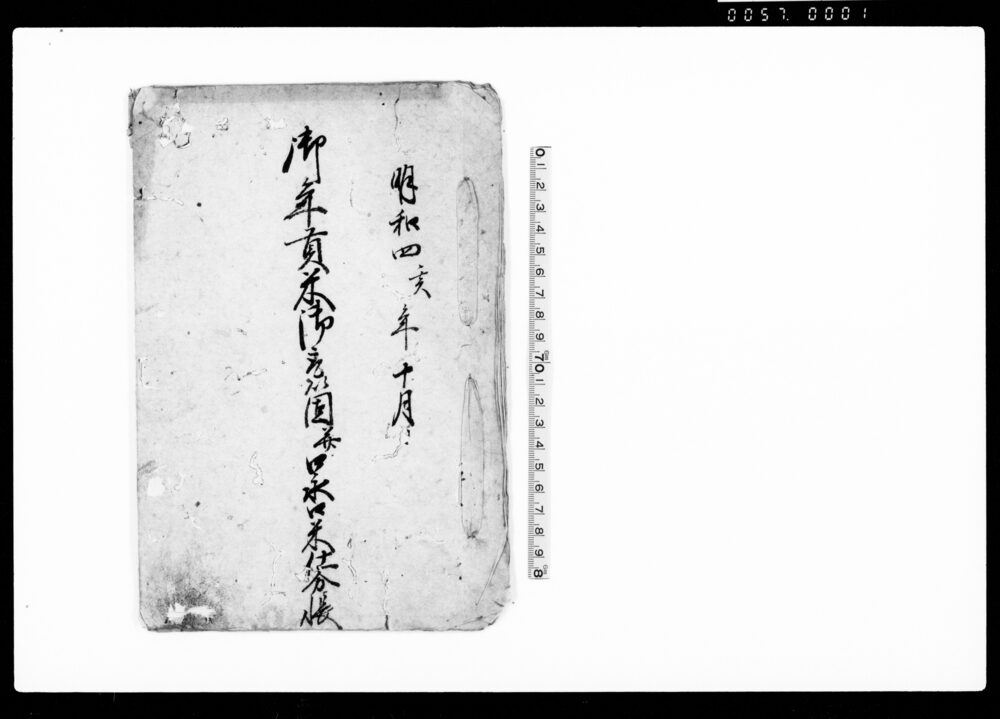 0057. 0001
明和四亥年十月
御年貢米御
固并口永口米仕分帳
0 1 2 3 4 5 6 7 8 9 70 1 2 3 4 5 6 7 8 9 8